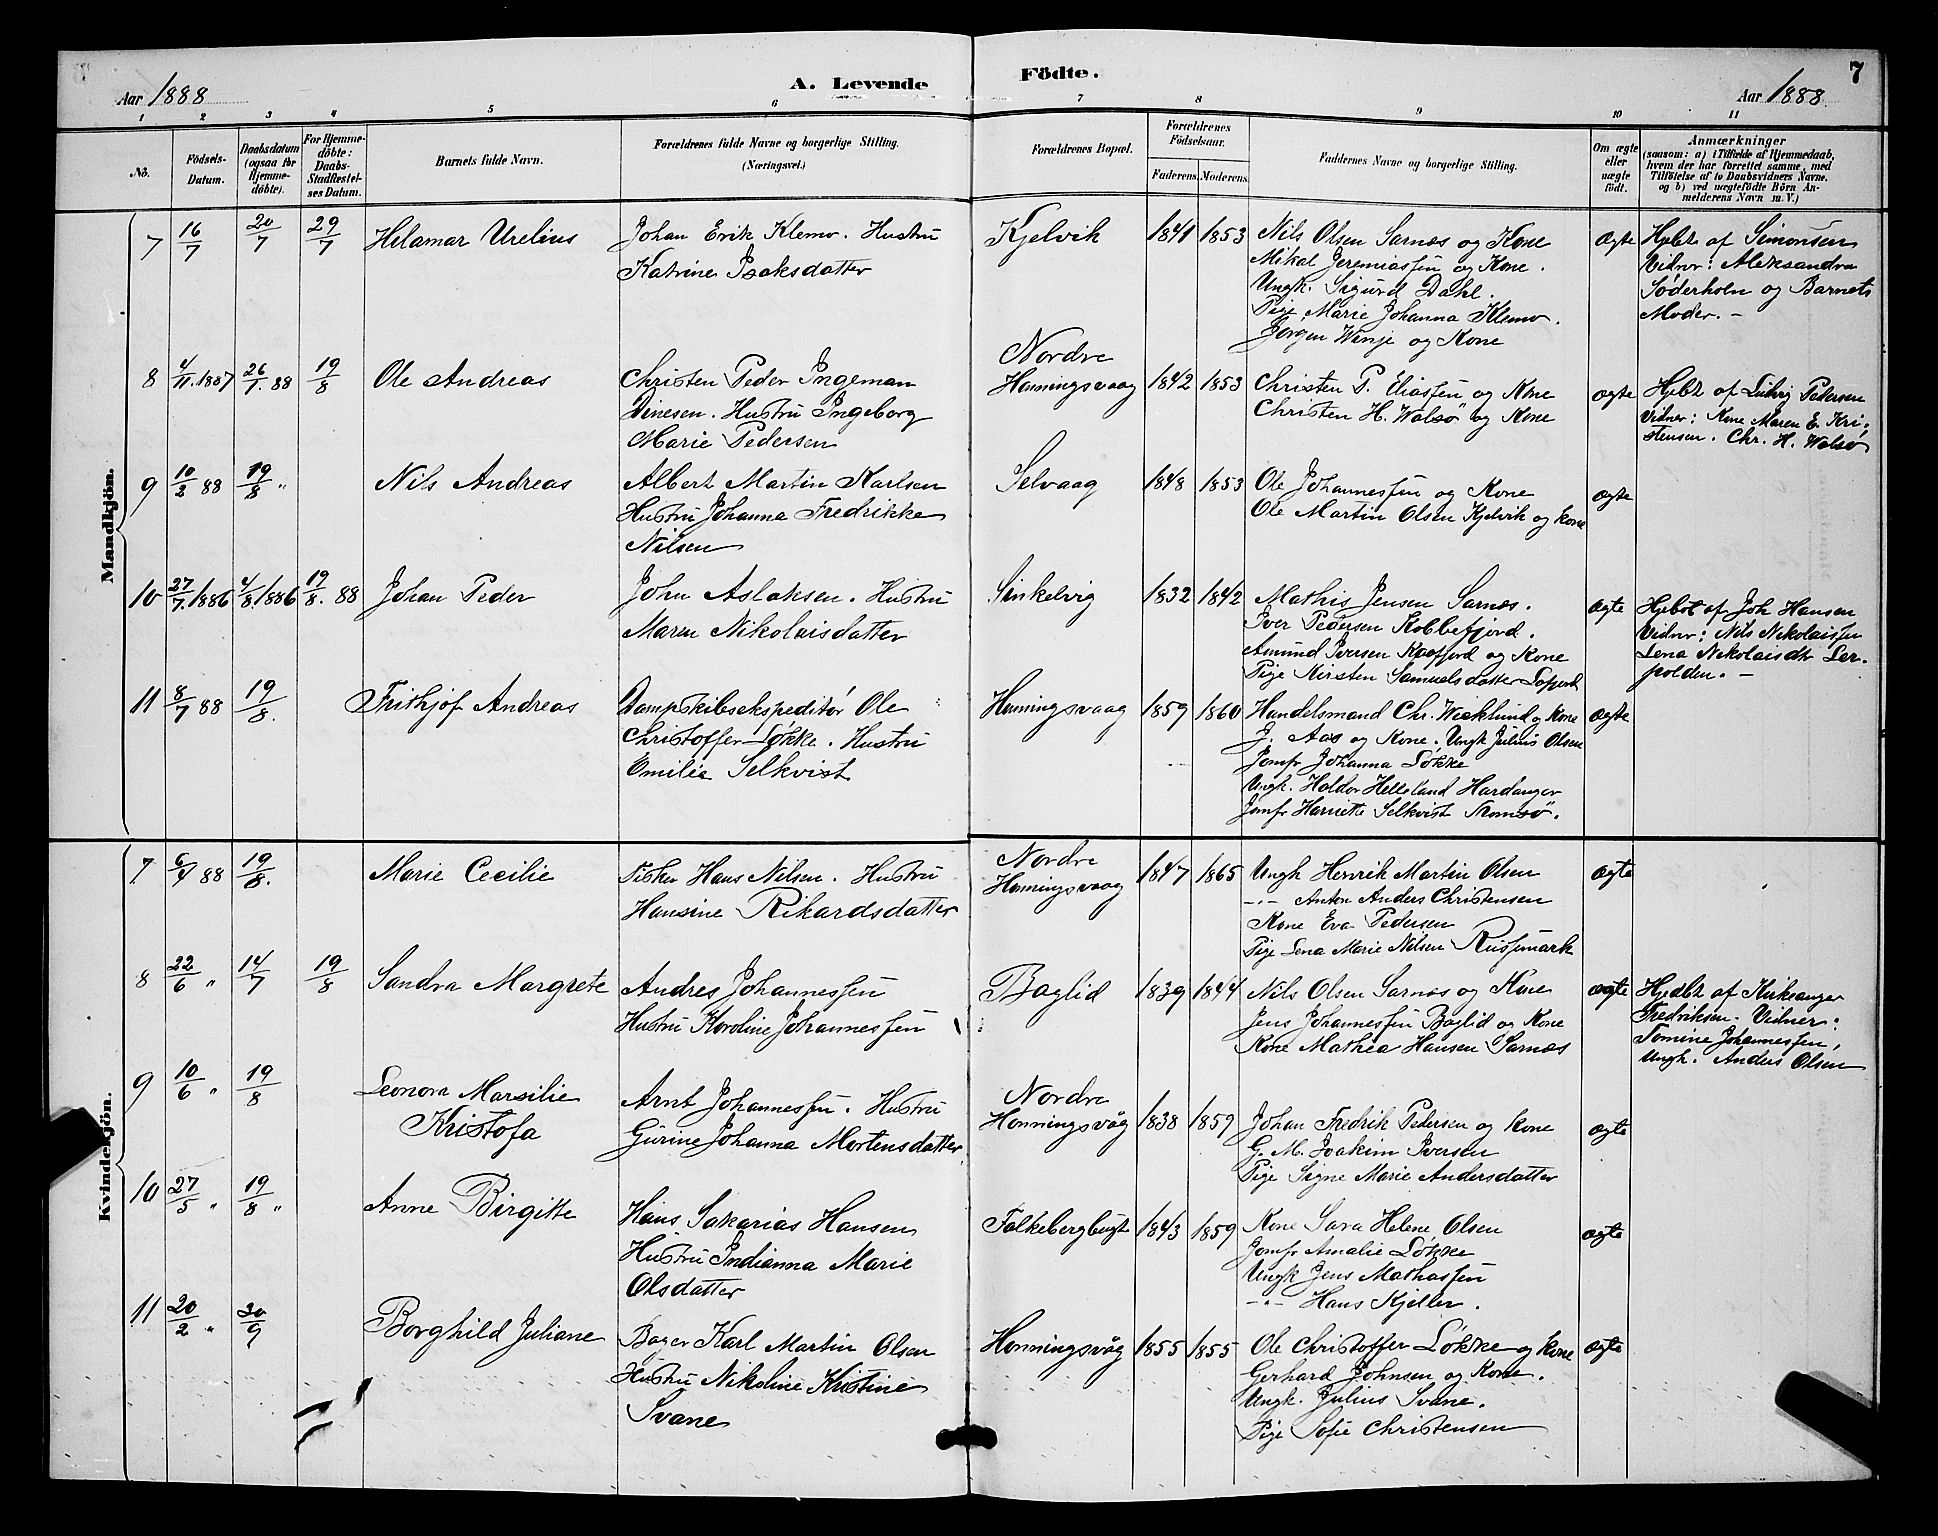 Aar 1888
A. Levende Födte.
7
Aar 1888
1 2 3 4 5 6 7 8 9 10 11
No.
Födsels-Datum.
Daabsdatum (ogsaa for Hjemme-döbte).
For Hjemme-döbte: Daabs-Stadfæstel-ses Datum.
Barnets fulde Navn.
Forældrenes fulde Navne og borgerlige Stilling.
(Næringsvei.)
Forældrenes Bopæl.
Forældrenes Födselsaar.
Faderens. Moderens.
Faddernes Navne og borgerlige Stilling.
Om ægte eller uægte født.
Anmærkninger
(saasom: a) i Tilfælde af Hjemmedaab,
hvem der har forrettet samme, med
Tilföielse af to Daabsvidners Navne.
og b) ved uægtefödte Börn An-
melderens Navn m. V.)
Mandkjön.
7 16/7 20/7 29/7 Hilamar Urelius
Johan Erik Klemo. Hustru
Katrine Isaksdatter
Kjelvik 1841 1853
Nils Olsen Sarnæs og Kone
Mikal Jeremiassen og Kone.
Ungk. Sigurd Dahl.
Pige Marie Johanna Klemo.
Jørgen Winje og Kone
ægte
Hjdbt af Simonsen
Vidner: Aleksandra
Söderholm og Barnets
Moder. –
8 4/11. 1887 26/1. 88 19/8 Ole Andreas
Christen Peder Ingeman
Dinesen. Hustru Ingeborg
Marie Pedersen
Nordre
Honningsvaag 1842 1853
Christen P. Eliassen og Kone
Christen H. Walsö og Kone
ægte
Hjdbt af Ludvig Pedersen
Vidner: Kone Maren E. Kri-
stensen. Chr. H. Walsø
9 10/2 88 19/8 " Nils Andreas
Albert Martin Karlsen
Hustru Johanna Fredrikke
Nilsen
Selvaag 1848 1853
Ole Johannessen og Kone
Ole Martin Olsen Kjelvik og Kone
ægte
10 27/7. 1886 4/8 1886 19/8. 88 Johan Peder
John Aslaksen. Hustru
Maren Nikolaisdatter
Sinkelvig 1832 1842
Mathis Jensen Sarnæs.
Iver Pedersen Kobbefjord.
Amund Iversen Kaafjord og Kone
Pige Kirsten Samuelsdatter
ægte
Hjdbt af Joh Hansen
Vidner: Nils Nikolaisen
Lena Nikolaisdtr Ler-
polden. –
11 8/7 88 19/8. Frithjof Andreas
Dampskibsekspeditør Ole
Christoffer Løkke. Hustru
Emilie Selkvist
Honningsvaag 1859 1860
Handelsmand Chr. Wicklund og Kone
J. Aas og Kone. Ungk Julius Olsen
Jomfr Johanna Løkke
Ungk. Haldor Helleland Hardanger
Jomfr Harriette Selkvist Tromsö.
ægte
Kvindekjön.
7. 6/4 88 19/8. Marie Cecilie
Fisker Hans Nilsen. Hustru
Hansine Rikardsdatter
Nordre
Honningsvaag 1847 1865
Ungk Henrik Martin Olsen
–"– Anton Anders Christensen
Kone Eva Pedersen
Pige Lena Marie Nilsen Russemark
ægte
8 22/6 " 14/7 19/8 Sandra Margrete
Andres Johannessen
Hustru Karoline Johannessen
Baglid 1839 1844
Nils Olsen Sarnæs og Kone
Jens Johannessen Baglid og Kone
Kone Mathea Hansen Sarnæs
ægte
Hjedbt af Kirksanger
Fredriksen. Vidner:
Tomine Johannessen,
Ungk. Anders Olsen
9 10/6 " 19/8 Leonora Marsilie
Kristofa
Arnt Johannessen. Hustru
Gurine Johanna Mortensdatter
Nordre
Honningsvåg 1838 1859
Johan Fredrik Pedersen og Kone
G. M. Joakim Iversen
Pige Signe Marie Andersdatter
ægte
10 27/5 " 19/8 " Anne Birgitte
Hans Sakarias Hansen
Hustru Indianna Marie
Olsdatter
Falkebergbugt 1843 1859
Kone Sara Helene Olsen
Jomfr Amalie Løkke
Ungk Jens Mathassen
–"– Hans Kjeller.
ægte
11 20/2 " 30/9 Borghild Juliane
Bager Karl Martin Olsen
Hustru Nikoline Kristine
Svane
Honningsvåg 1855 1855
Ole Christoffer Løkke og Kone
Gerhard Johnsen og Kone.
Ungk. Julius Svane.
Pige Sofie Christensen
ægte